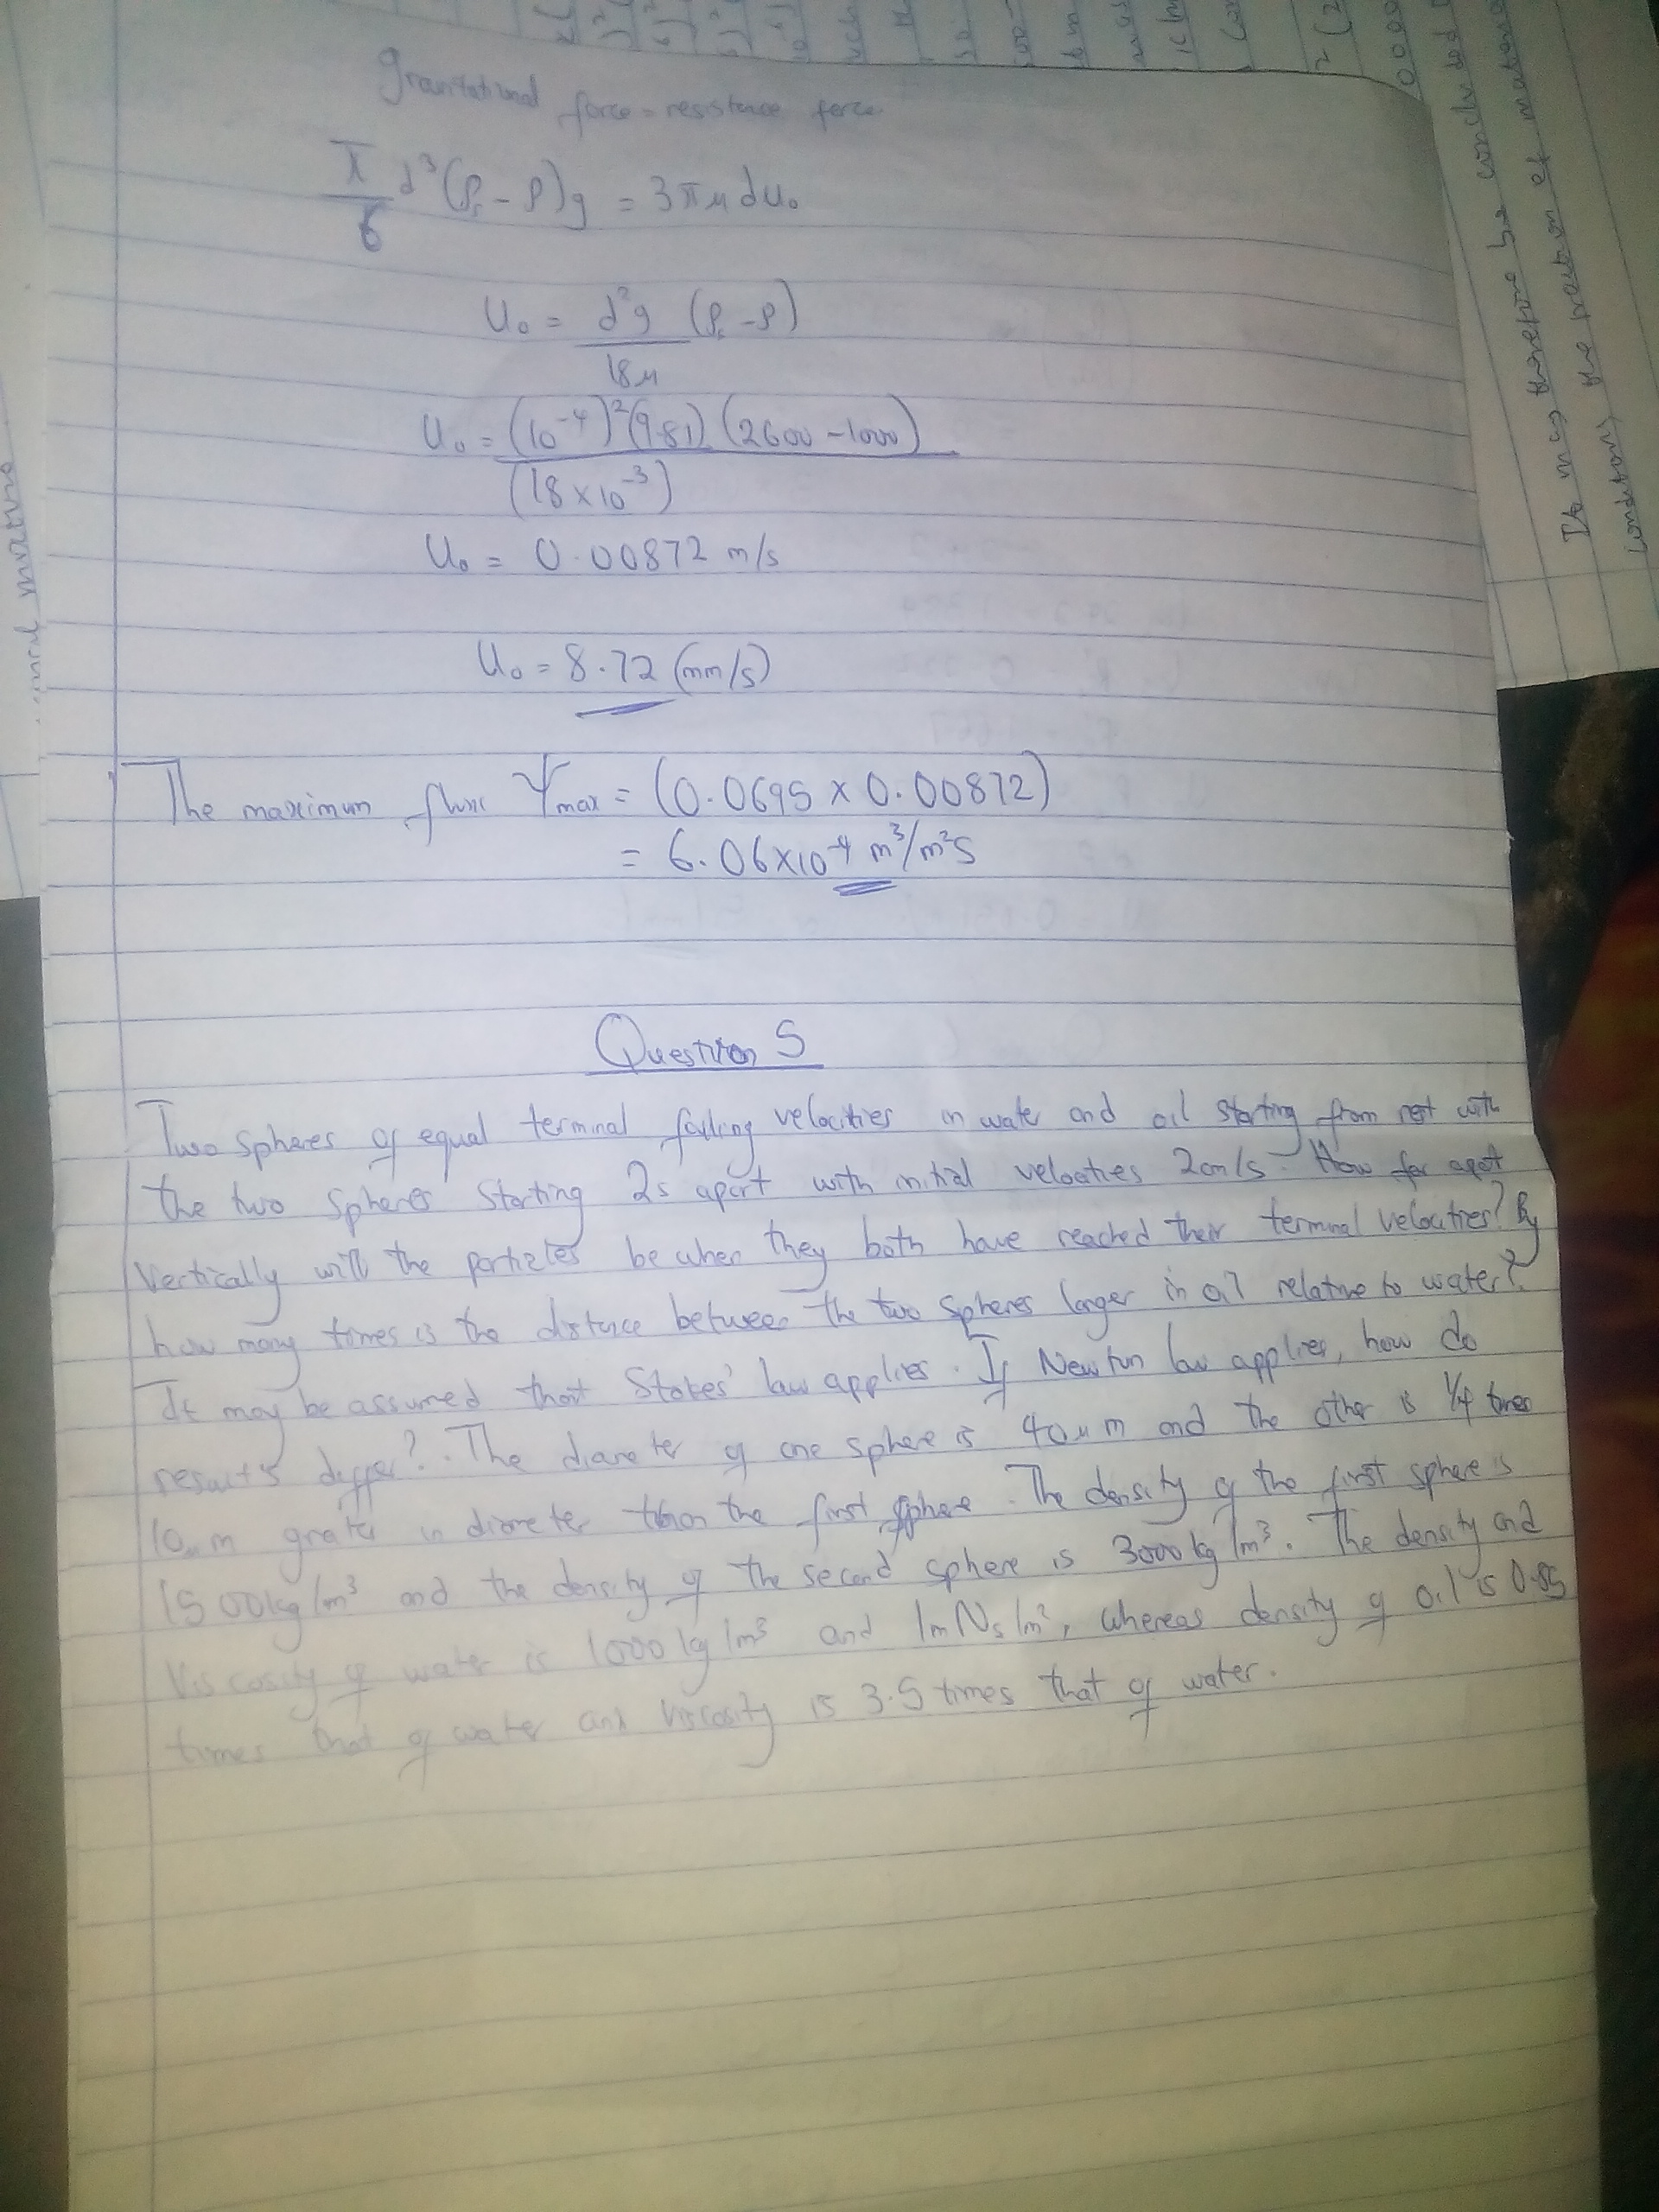 Gravitational force = resistence force
π/6 d³(ρs - ρ)g = 3πμdu₀
U₀ = d²g/18μ (ρs - ρ)
U₀ = (10⁻⁴)²(9.81)(2600 - 1000)/(18 × 10⁻³)
U₀ = 0.00872 m/s
U₀ = 8.72 (mm/s)
The maximum flux Ψmax = (0.0695 × 0.00872)
= 6.06×10⁻⁴ m³/m²s
Question 5
Two spheres of equal terminal falling velocities in water and oil starting from rest with
the two spheres starting 2s apart with initial velocities 2cm/s. How far apart
vertically will the particles be when they both have reached their terminal velocities? By
how many times is the distance between the two spheres larger in oil relative to water?
It may be assumed that Stokes' law applies. If Newton law applies, how do
results differ? The diameter of one sphere is 40μm and the other is 1/4 times
10μm greater in diameter than the first sphere. The density of the first sphere is
1500kg/m³ and the density of the second sphere is 3000kg/m³. The density and
Viscosity of water is 1000kg/m³ and 1mNs/m², whereas density of oil is 0.85
times that of water and viscosity is 3.5 times that of water.
It may therefore be concluded
conditions, the fraction of material